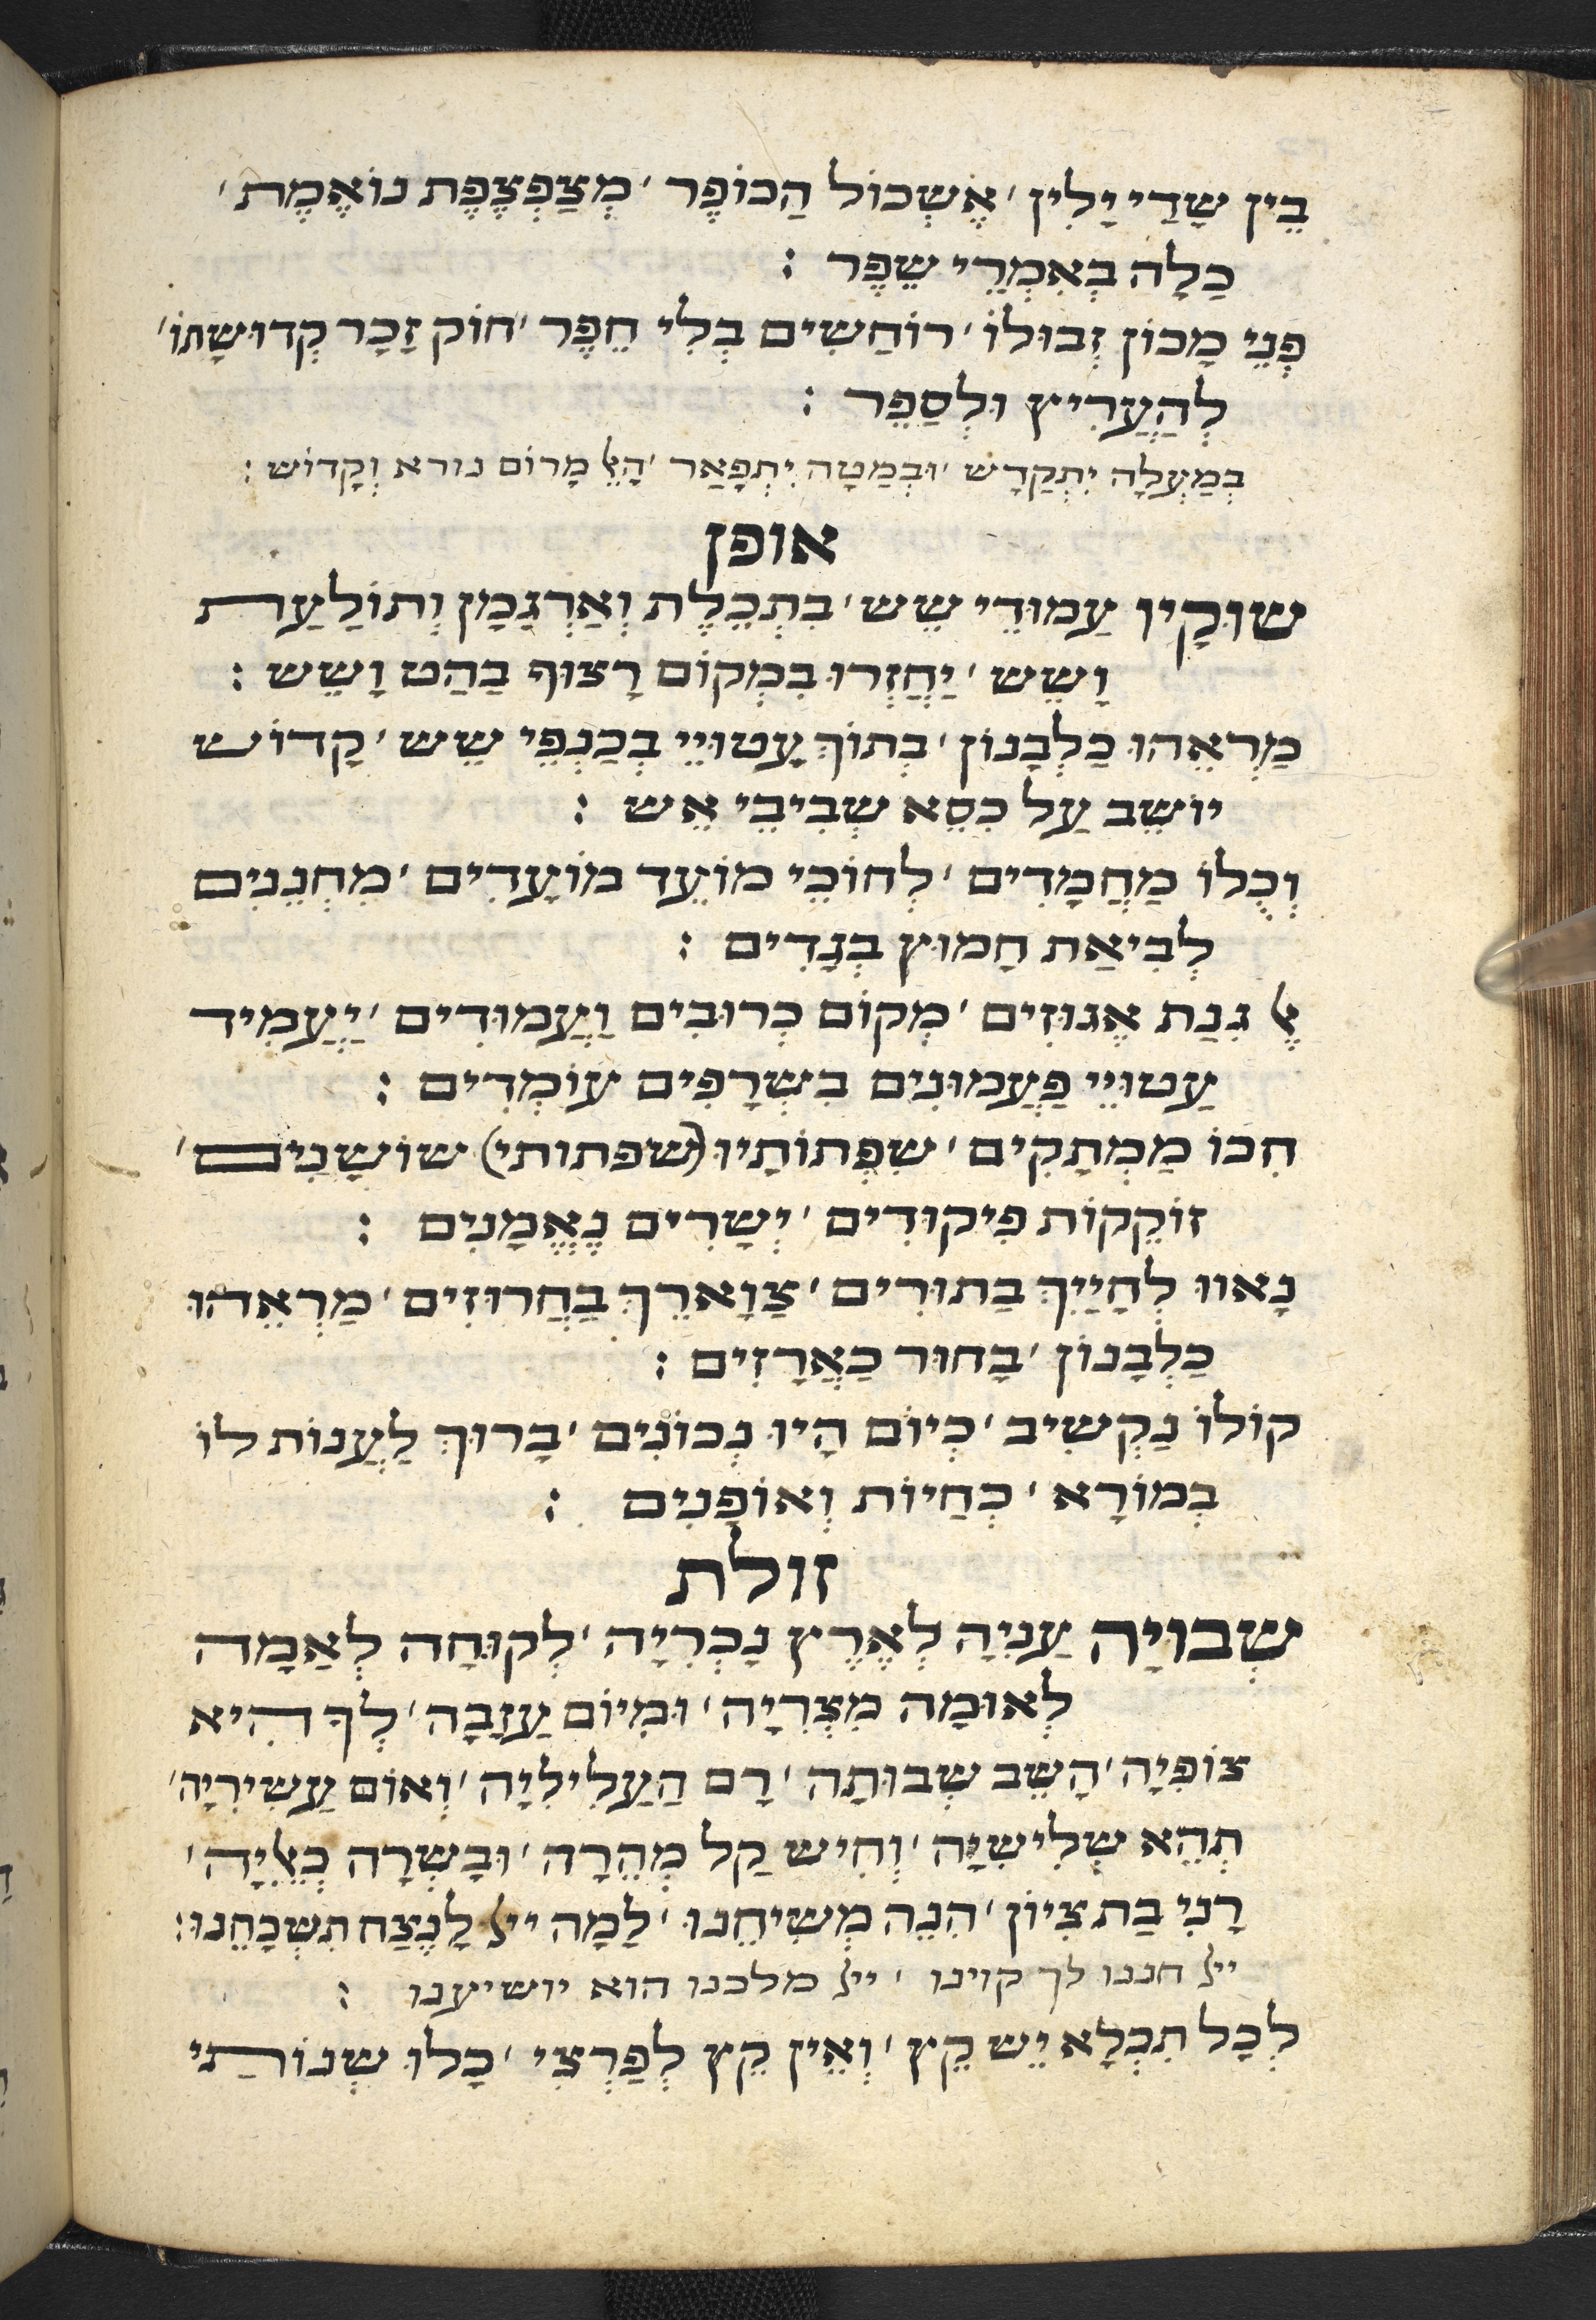 בֵּין שָׁדַי יָלִין ׳ אֶשְׁכּוֹל הַכּוֹפֶר ׳ מְצַפְצֶפֶת נוֹאֶמֶת ׳
כַּלָּה בְּאִמְרֵי שֶׁפֶר :
פְּנֵי מָכוֹן זְבוּלוֹ ׳ רוֹחֲשִׁים בְּלִי חֵפֶר ׳ חוֹק זָכָר קְדוּשָּׁתוֹ ׳
לְהַעֲרִיץ וּלְסַפֵּר :
בְּמַעְלָה יִתְקַדָּשׁ ׳ וּבְמַטָּה יִתְפָּאַר ׳ הָﭏ מָרוֹם נורא וְקָדוֹשׁ :
אופן
שׁוּקָיו עַמּוּדֵי שֵׁשׁ ׳ בִּתְכֵלֶת וְאַרְגָּמָן וְתוֹלַעַת
וָשֵׁשׁ ׳ יַחֲזְרוּ בִּמְקוֹם רָצוּף בַּהַט וָשֵׁשׁ :
מַרְאֵהוּ כַּלְּבָנוֹן ׳ בְּתוֹךְ עֲטוּיֵי בְּכַנְפֵי שֵׁשׁ ׳ קָדוֹשׁ
יוֹשֵׁב עַל כִּסֵּא שְׁבִיבֵי אֵשׁ :
וְכֻלּוֹ מַחֲמַדִּים ׳ לְחוֹכֵי מוֹעֵד מוֹעֲדִים ׳ מִתְחַנְּנִים
לְבִיאַת חָמוּץ בְּגָדִים :
ﭏ גִּנַּת אֱגוֹזִים ׳ מְקוֹם כְּרוּבִים וַעֲמוּדִים ׳ יַעֲמִיד
עַטוּיֵי פַּעֲמוֹנִים כִּשְׂרָפִים עוֹמְדִים :
חִכּוֹ מַמְתַּקִּים ׳ שִׂפְתוֹתָיו (שפתותי) שׁוֹשַׁנִּים ׳
זוֹקֵקוֹת פִּיקוּדִים ׳ יְשָׁרִים נֶאֱמָנִים :
נָאווּ לְחָיַיִךְ בַּתּוֹרִים ׳ צַוָּארֵךְ בַּחֲרוּזִים ׳ מַרְאֵהוּ
כַּלְּבָנוֹן ׳ בָּחוּר כַּאֲרָזִים :
קוֹלוֹ נַקְשִׁיב ׳ כְּיוֹם הָיוּ נְכוֹנִים ׳ בָּרוּךְ לַעֲנוֹת לוֹ
בְּמוֹרָא ׳ כְּחַיּוֹת וְאוֹפַנִּים :
זולת
שְׁבוּיָה עֲנִיָּה לְאֶרֶץ נָכְרִיָּה ׳ לְקוּחָה לְאָמָה
לְאוּמָה מִצְרִיָּה ׳ וּמִיּוֹם עֲזָבָהּ ׳ לְךָ הִיא
צוֹפִיָּה ׳ הָשֵׁב שְׁבוּתָהּ ׳ רָם הָעֲלִילִיָּה ׳ וְאוֹם עֲשִׂירִיָּה ׳
תְּהֵא שְׁלִישִׁיָּה ׳ וְחִישׁ קַל מְהֵרָה ׳ וּבָשְׂרָהּ כְּﭏיָּה ׳
רָנִּי בַּת צִיּוֹן ׳ הִנֵּה מְשִׁיחֵנוּ ׳ לָמָּה ייל לָנֶצַח תִּשְׁכָּחֵנוּ :
ייל חננו לך קוינו ׳ ייל מלכנו הוא יושיענו :
לְכָל תִּכְלָא יֵשׁ קֵץ ׳ וְאֵין קֵץ לְפִרְצִי ׳ כָּלוּ שְׁנוֹתַי